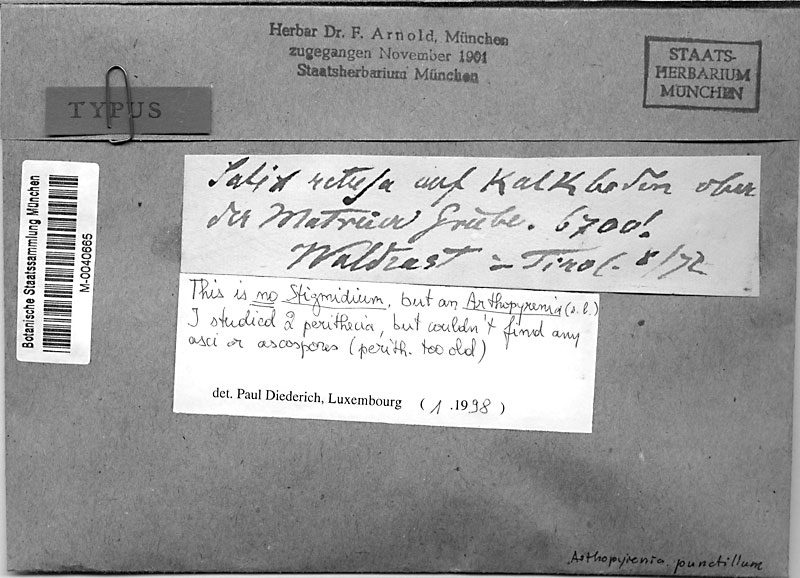 Herbar Dr. F. Arnold, München
zugegangen November 1901
Staatsherbarium München
STAATS-
HERBARIUM
MÜNCHEN
TYPUS
Botanische Staatssammlung München
M-0040665
Salix retusa auf Kalkboden ober
der Matreier Grube. 6700'.
Waldrast - Tirol. 8/72
This is no Stigmidium, but an Arthopyrenia (s.l.)
I studied 2 perithecia, but couldn't find any
asci or ascospores (perith. too old)
det. Paul Diederich, Luxembourg (1.1998)
Arthopyrenia punctillum